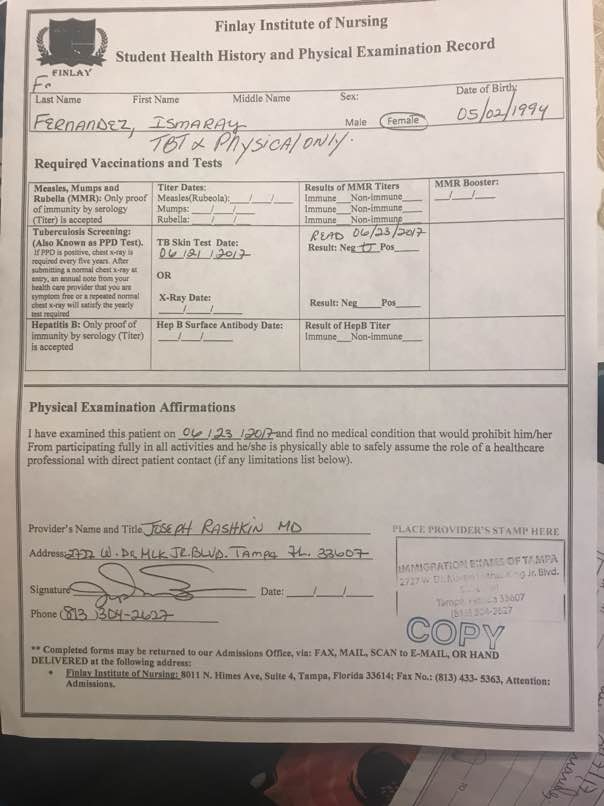 Finlay Institute of Nursing
Student Health History and Physical Examination Record
FINLAY
Last Name First Name Middle Name Sex: Date of Birth
FERNANDEZ, ISMARAY Male Female 05/02/1994
TBT & PHYSICAL ONLY.
Required Vaccinations and Tests
Measles, Mumps and Rubella (MMR): Only proof of immunity by serology (Titer) is accepted
Titer Dates:
Measles(Rubeola):___/___/___
Mumps: ___/___/___
Rubella: ___/___/___
Results of MMR Titers
Immune___Non-immune___
Immune___Non-immune___
Immune___Non-immune___
MMR Booster:
___/___/___
Tuberculosis Screening: (Also Known as PPD Test). If PPD is positive, chest x-ray is required every five years. After submitting a normal chest x-ray at entry, an annual note from your health care provider that you are symptom free or a repeated normal chest x-ray will satisfy the yearly test required
TB Skin Test Date:
06/21/2017
OR
X-Ray Date:
___/___/___
READ 06/23/2017
Result: Neg Pos___
Result: Neg___Pos___
Hepatitis B: Only proof of immunity by serology (Titer) is accepted
Hep B Surface Antibody Date:
___/___/___
Result of HepB Titer
Immune___Non-immune___
Physical Examination Affirmations
I have examined this patient on 06/23/2017 and find no medical condition that would prohibit him/her
From participating fully in all activities and he/she is physically able to safely assume the role of a healthcare
professional with direct patient contact (if any limitations list below).
Provider's Name and Title JOSEPH RASHKIN MD
PLACE PROVIDER'S STAMP HERE
Address: 2727 W. DR. MLK JR. BLVD. TAMPA FL. 33607
IMMIGRATION EXAMS OF TAMPA
2727 W. Dr. Martin Luther King Jr. Blvd.
Tampa, Florida 33607
(813) 304-2627
Signature Date: ___/___/___
Phone (813)304-2627
COPY
** Completed forms may be returned to our Admissions Office, via: FAX, MAIL, SCAN to E-MAIL, OR HAND
DELIVERED at the following address:
• Finlay Institute of Nursing: 8011 N. Himes Ave, Suite 4, Tampa, Florida 33614; Fax No.: (813) 433- 5363, Attention:
Admissions.